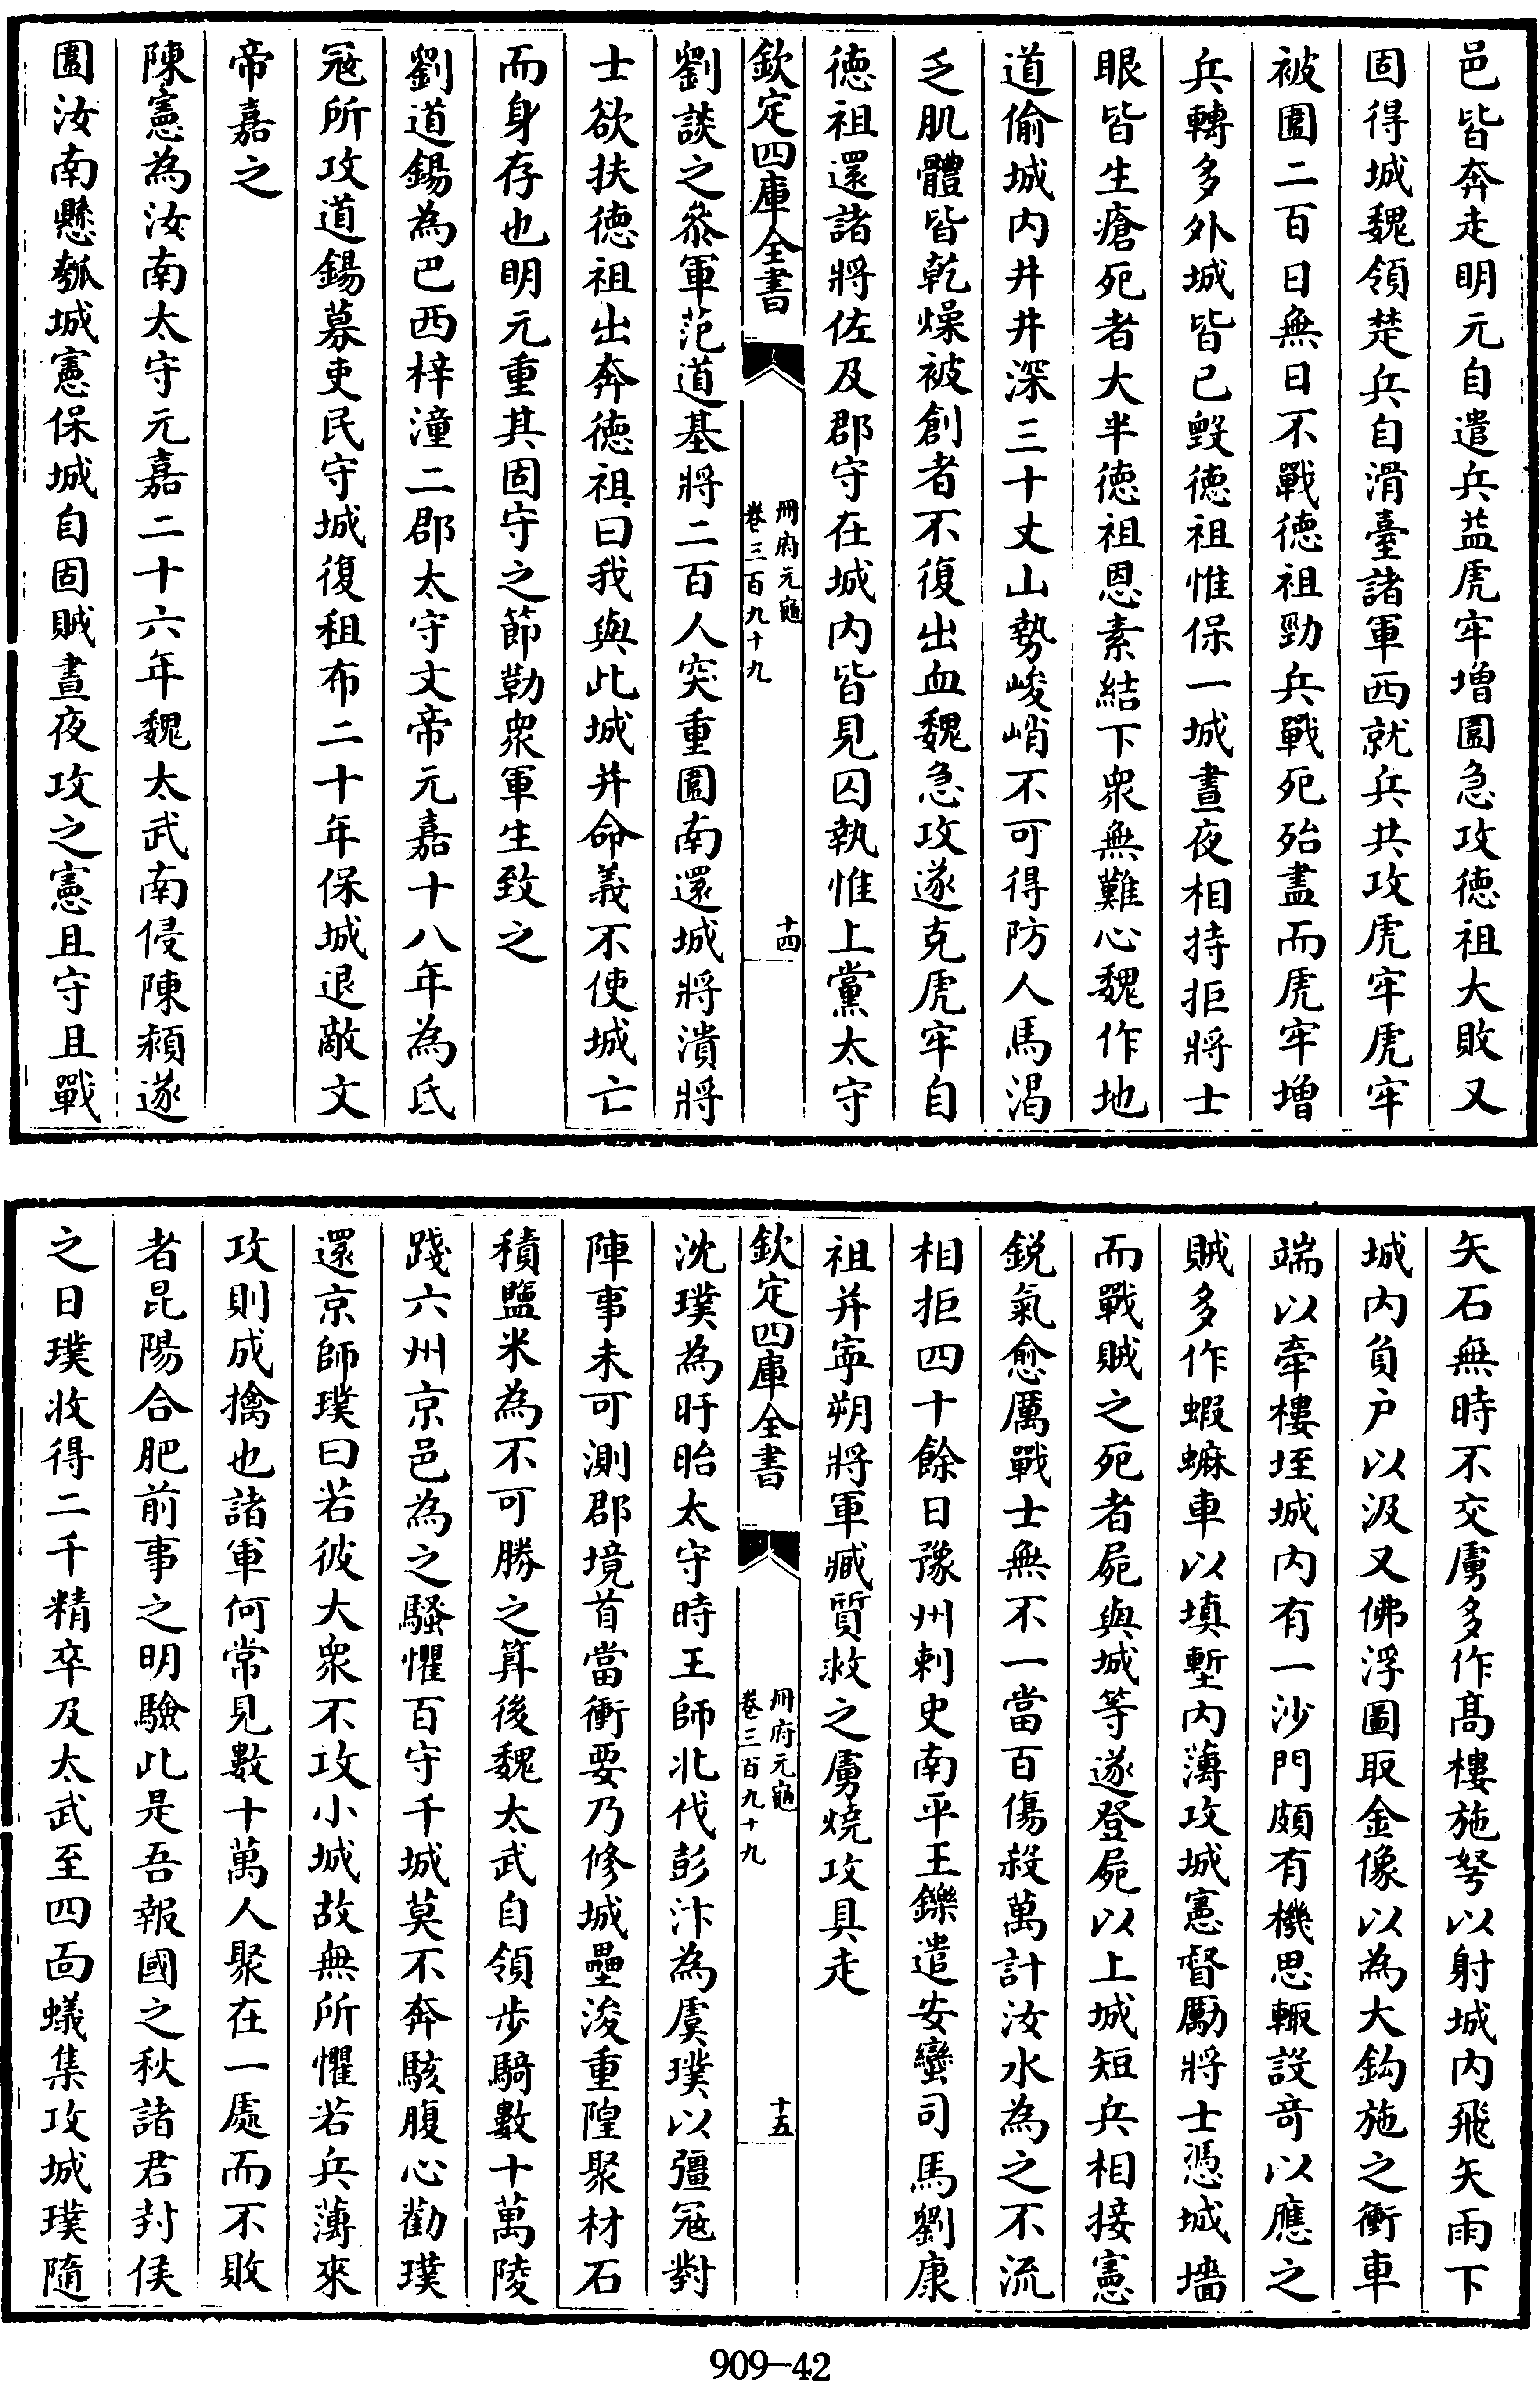 邑皆奔走明元自遣兵益虎牢增圍急攻徳祖大敗又
固得城魏領楚兵自滑臺諸軍西就兵共攻虎牢虎牢
被圍二百日無日不戰徳祖勁兵戰死殆盡而虎牢増
兵轉多外城皆已毀徳祖惟保一城晝夜相持拒將士
眼皆生瘡死者大半徳祖恩素結下衆無難心魏作地
道偷城内井井深三十丈山勢峻峭不可得防人馬渴
乏肌體皆乾燥被創者不復出血魏急攻遂克虎牢自
徳祖還諸將佐及郡守在城内皆見囚執惟上黨太守
欽定四庫全書
冊府元龜
卷三百九十九
十四
劉談之叅軍范道基將二百人突重圍南還城將潰將
士欲扶徳祖出奔徳祖曰我與此城并命義不使城亡
而身存也明元重其固守之節勒衆軍生致之
劉道錫為巴西梓潼二郡太守文帝元嘉十八年為氐
宼所攻道錫募吏民守城復租布二十年保城退敵文
帝嘉之
陳憲為汝南太守元嘉二十六年魏太武南侵陳潁遂
圍汝南懸瓠城憲保城自固賊晝夜攻之憲且守且戰
矢石無時不交虜多作髙樓施弩以射城内飛矢雨下
城内負户以汲又佛浮圖取金像以為大鈎施之衝車
端以牽樓垤城内有一沙門頗有機思輙設竒以應之
賊多作蝦蟆車以填塹内薄攻城憲督勵將士憑城墻
而戰賊之死者屍與城等遂登屍以上城短兵相接憲
鋭氣愈厲戰士無不一當百傷殺萬計汝水為之不流
相拒四十餘日豫州刺史南平王鑠遣安蠻司馬劉康
祖并寜朔將軍臧質救之虜燒攻具走
欽定四庫全書
冊府元龜
卷三百九十九
十五
沈璞為盱眙太守時王師北伐彭汴為虞璞以彊宼對
陣事未可測郡境首當衝要乃修城壘浚重隍聚材石
積鹽米為不可勝之算後魏太武自領步騎數十萬陵
踐六州京邑為之騷懼百守千城莫不奔駭腹心勸璞
還京師璞曰若彼大衆不攻小城故無所懼若兵薄來
攻則成擒也諸軍何常見數十萬人聚在一處而不敗
者昆陽合肥前事之明驗此是吾報國之秋諸君封侯
之日璞收得二千精卒及太武至四面蟻集攻城璞隨
909-42